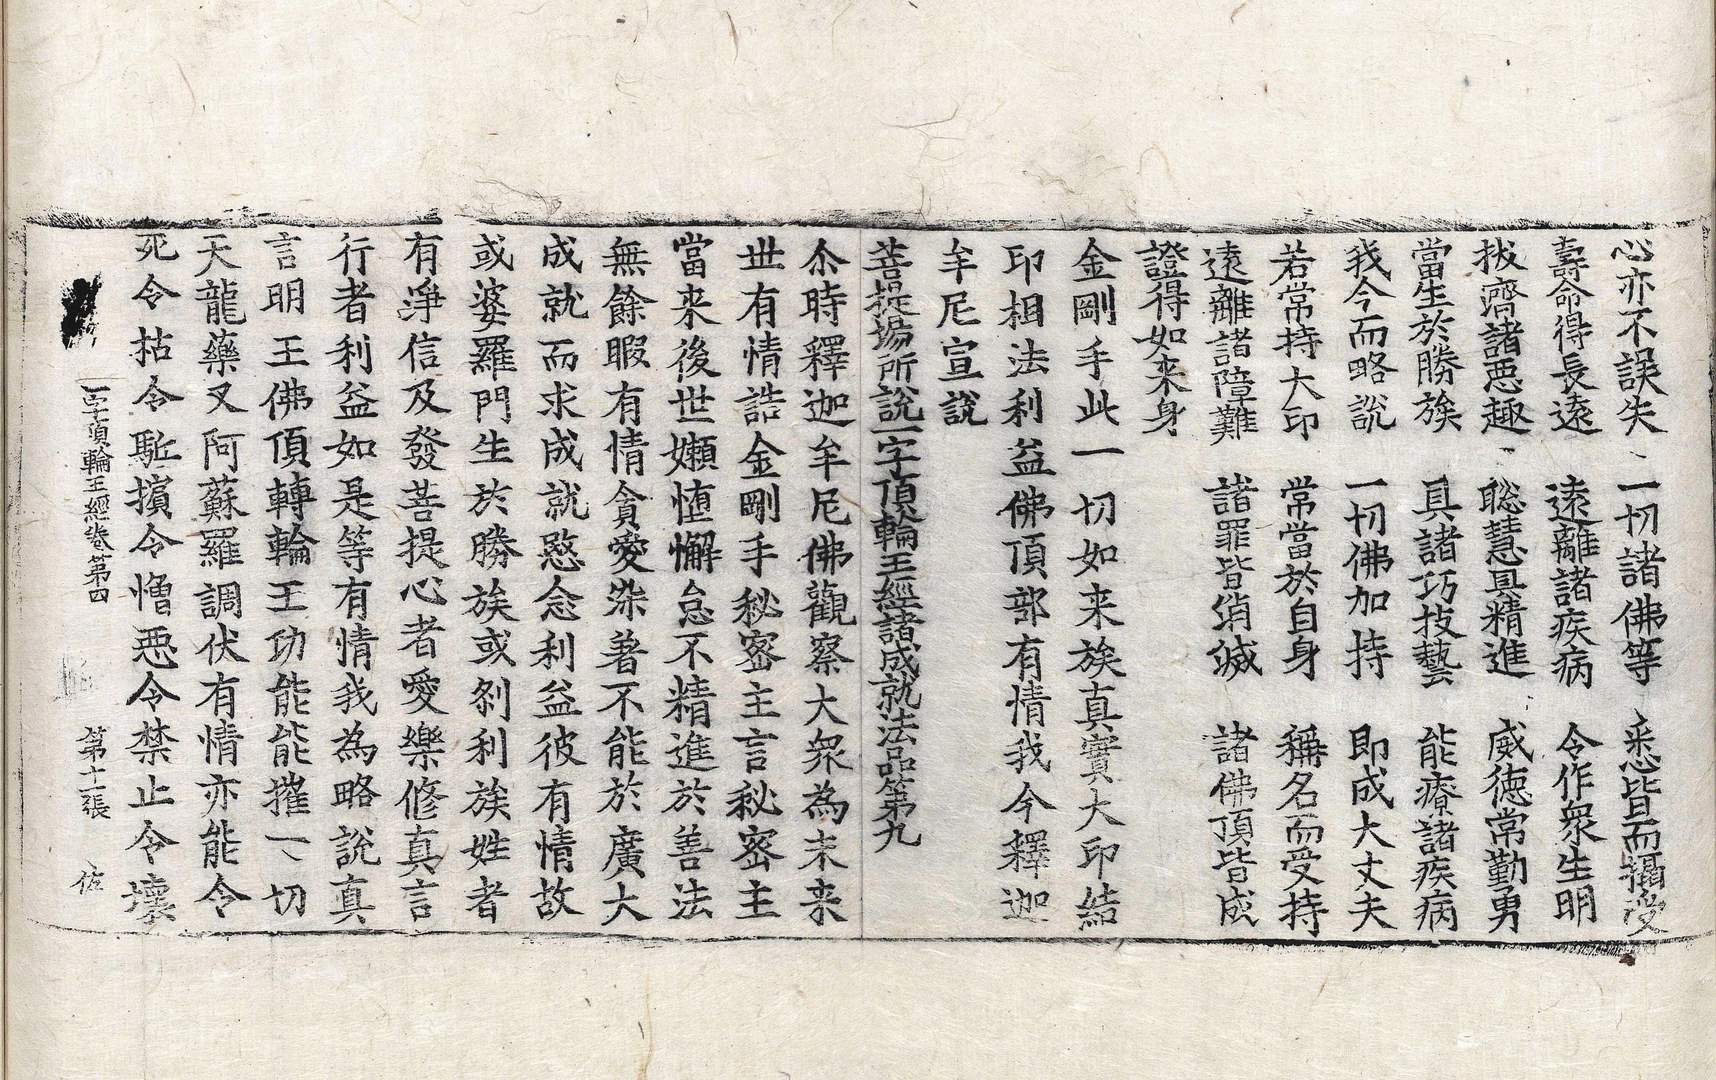 心亦不誤失　一切諸佛等　悉皆而攝受
壽命得長遠　遠離諸疾病　令作衆生明
拔濟諸惡趣　聡慧具精進　威德常勤勇
當生於勝族　具諸巧技藝　能療諸疾病
我今而略說　一切佛加持　即成大丈夫
若常持大印　常當於自身　稱名而受持
遠離諸障難　諸罪皆消滅　諸佛頂皆成
證得如来身
金剛手此一切如来族真實大印結
印相法利益佛頂部有情我今釋迦
牟尼宣說
菩提場所說一字頂輪王經諸成就法品第九
尒時釋迦牟尼佛觀察大衆為未来
世有情誥金剛手秘密主言秘密主
當来後世嬾墯懈怠不精進於善法
無餘暇有情貪愛染著不能於廣大
成就而求成就愍念利益彼有情故
或婆羅門生於勝族或刹利族姓者
有淨信及發菩提心者愛樂修真言
行者利益如是等有情我為略說真
言明王佛頂轉輪王功能能摧一切
天龍藥叉阿蘇羅調伏有情亦能令
死令枯令駈擯令憎惡令禁止令壞
一字頂輪王經卷第四　第十一張　佐